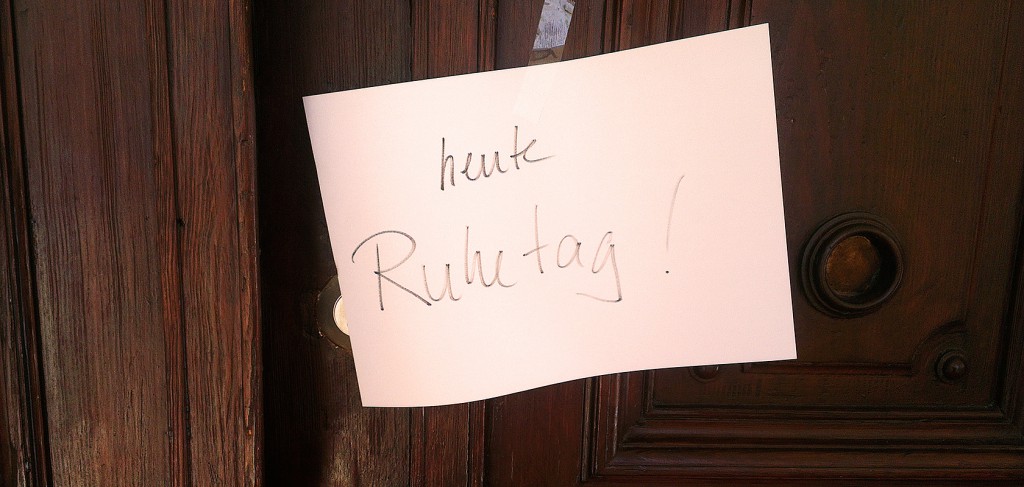 heute
Ruhetag!